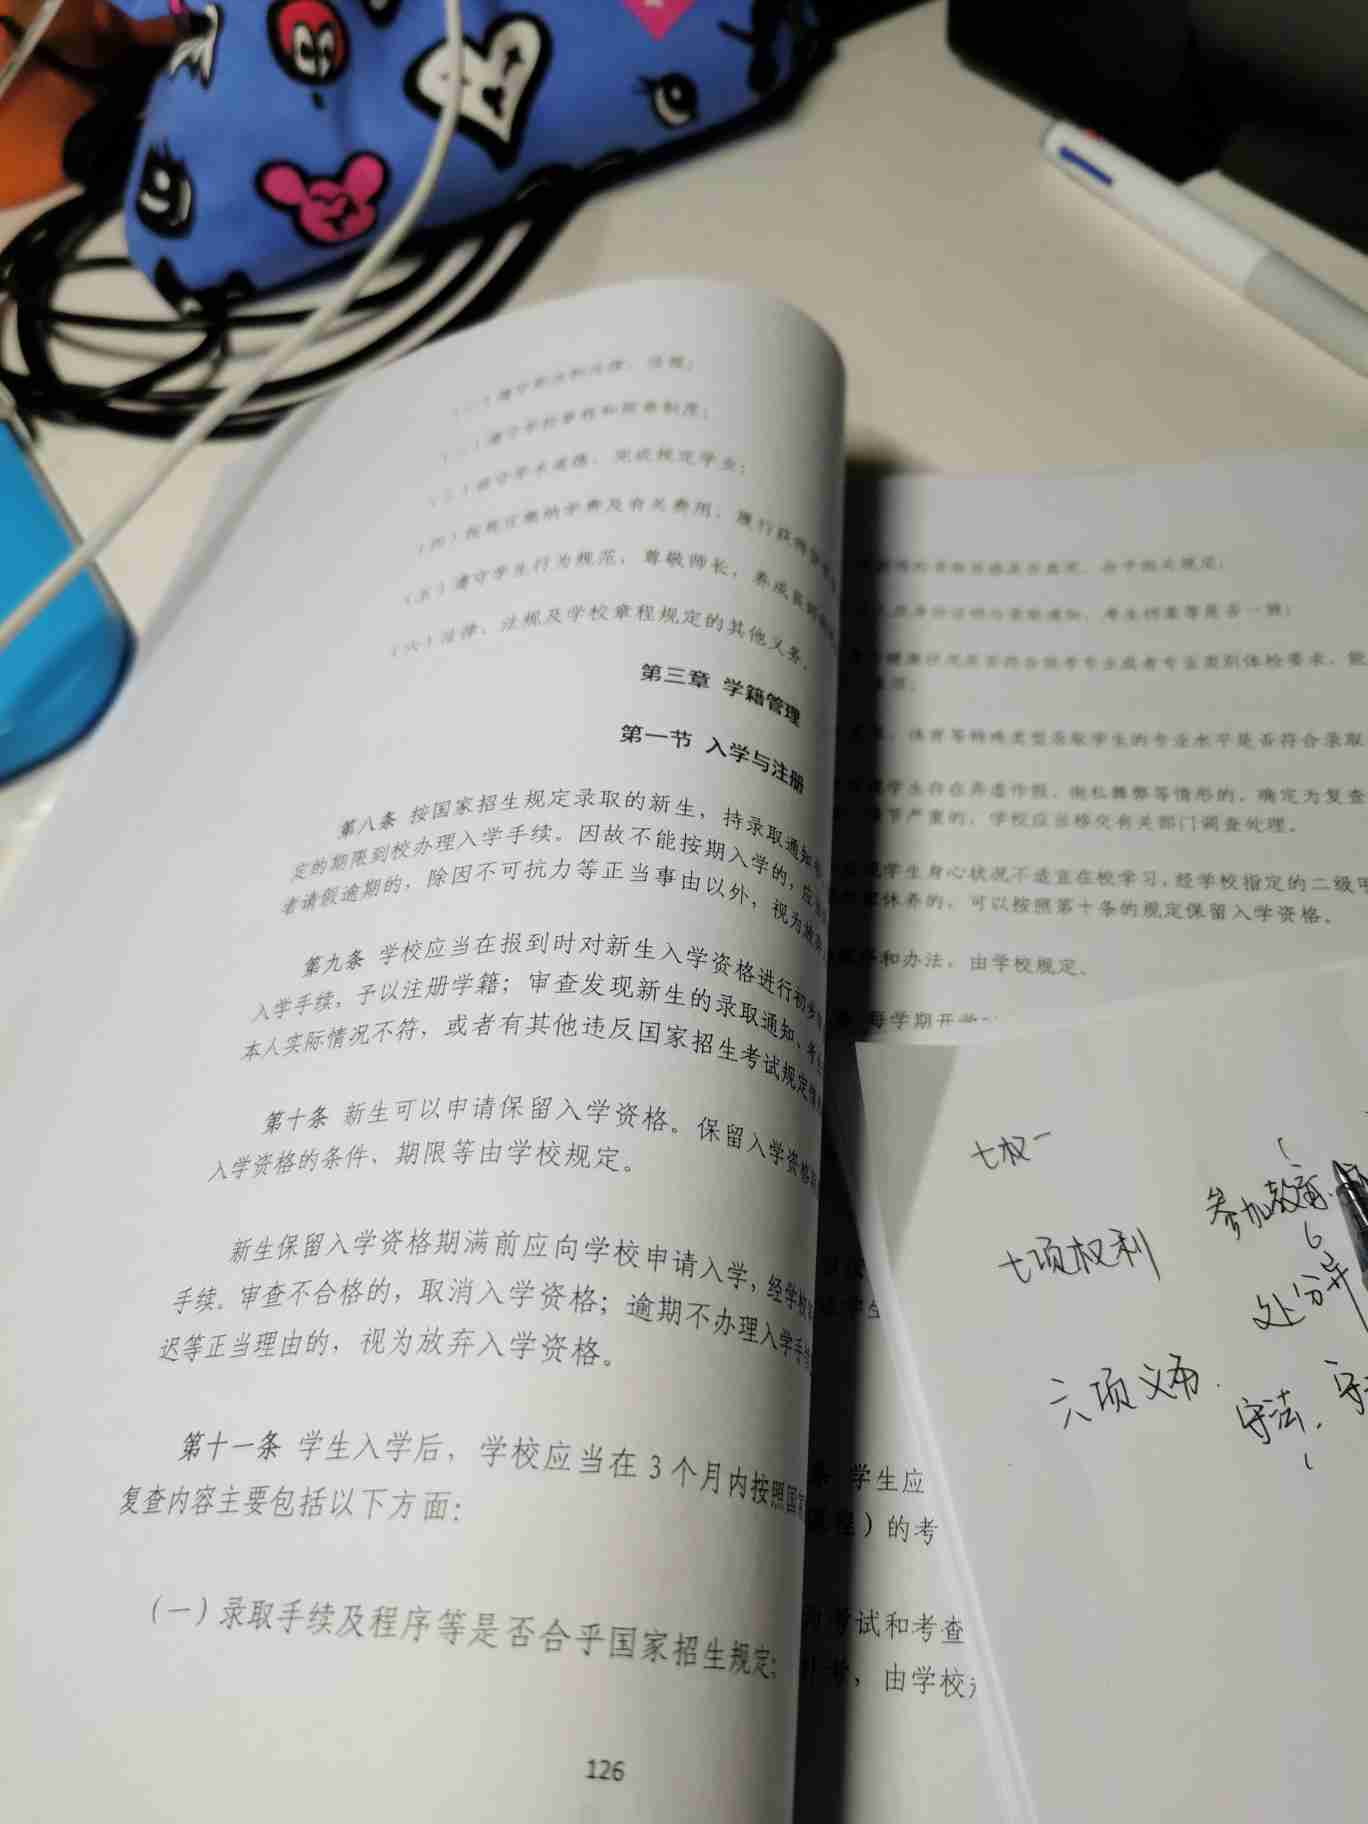 遵守学校章程和规章制度；
恪守学术道德，完成规定学业；
（四）按规定缴纳学费及有关费用，履行获得
（五）遵守学生行为规范，尊敬师长，养成
（六）法律、法规及学校章程规定的其他义务。
第三章 学籍管理
第一节 入学与注册
第八条 按国家招生规定录取的新生，持录取通知
定的期限到校办理入学手续。因故不能按期入学的，应
者请假逾期的，除因不可抗力等正当事由以外，视为放
第九条 学校应当在报到时对新生入学资格进行初步
入学手续，予以注册学籍；审查发现新生的录取通知、考
本人实际情况不符，或者有其他违反国家招生考试规定
第十条 新生可以申请保留入学资格。保留入学资格
入学资格的条件、期限等由学校规定。
新生保留入学资格期满前应向学校申请入学，经学校
手续。审查不合格的，取消入学资格；逾期不办理入学手
迟等正当理由的，视为放弃入学资格。
第十一条 学生入学后，学校应当在 3 个月内按照国
复查内容主要包括以下方面：
（一）录取手续及程序等是否合乎国家招生规定；
126
考生档案等是否一致；
体育等特殊类型录取学生的专业水平是否符合录取
学生存在弄虚作假、徇私舞弊等情形的，确定为复查
节严重的，学校应当移交有关部门调查处理。
学生身心状况不适宜在校学习，经学校指定的二级甲
休养的，可以按照第十条的规定保留入学资格。
和办法，由学校规定。
每学期开
学生应
）的考
考试和考查
，由学校
七权一
七项权利
1
参加教育
6
处分异
六项义务.
守法. 守
1